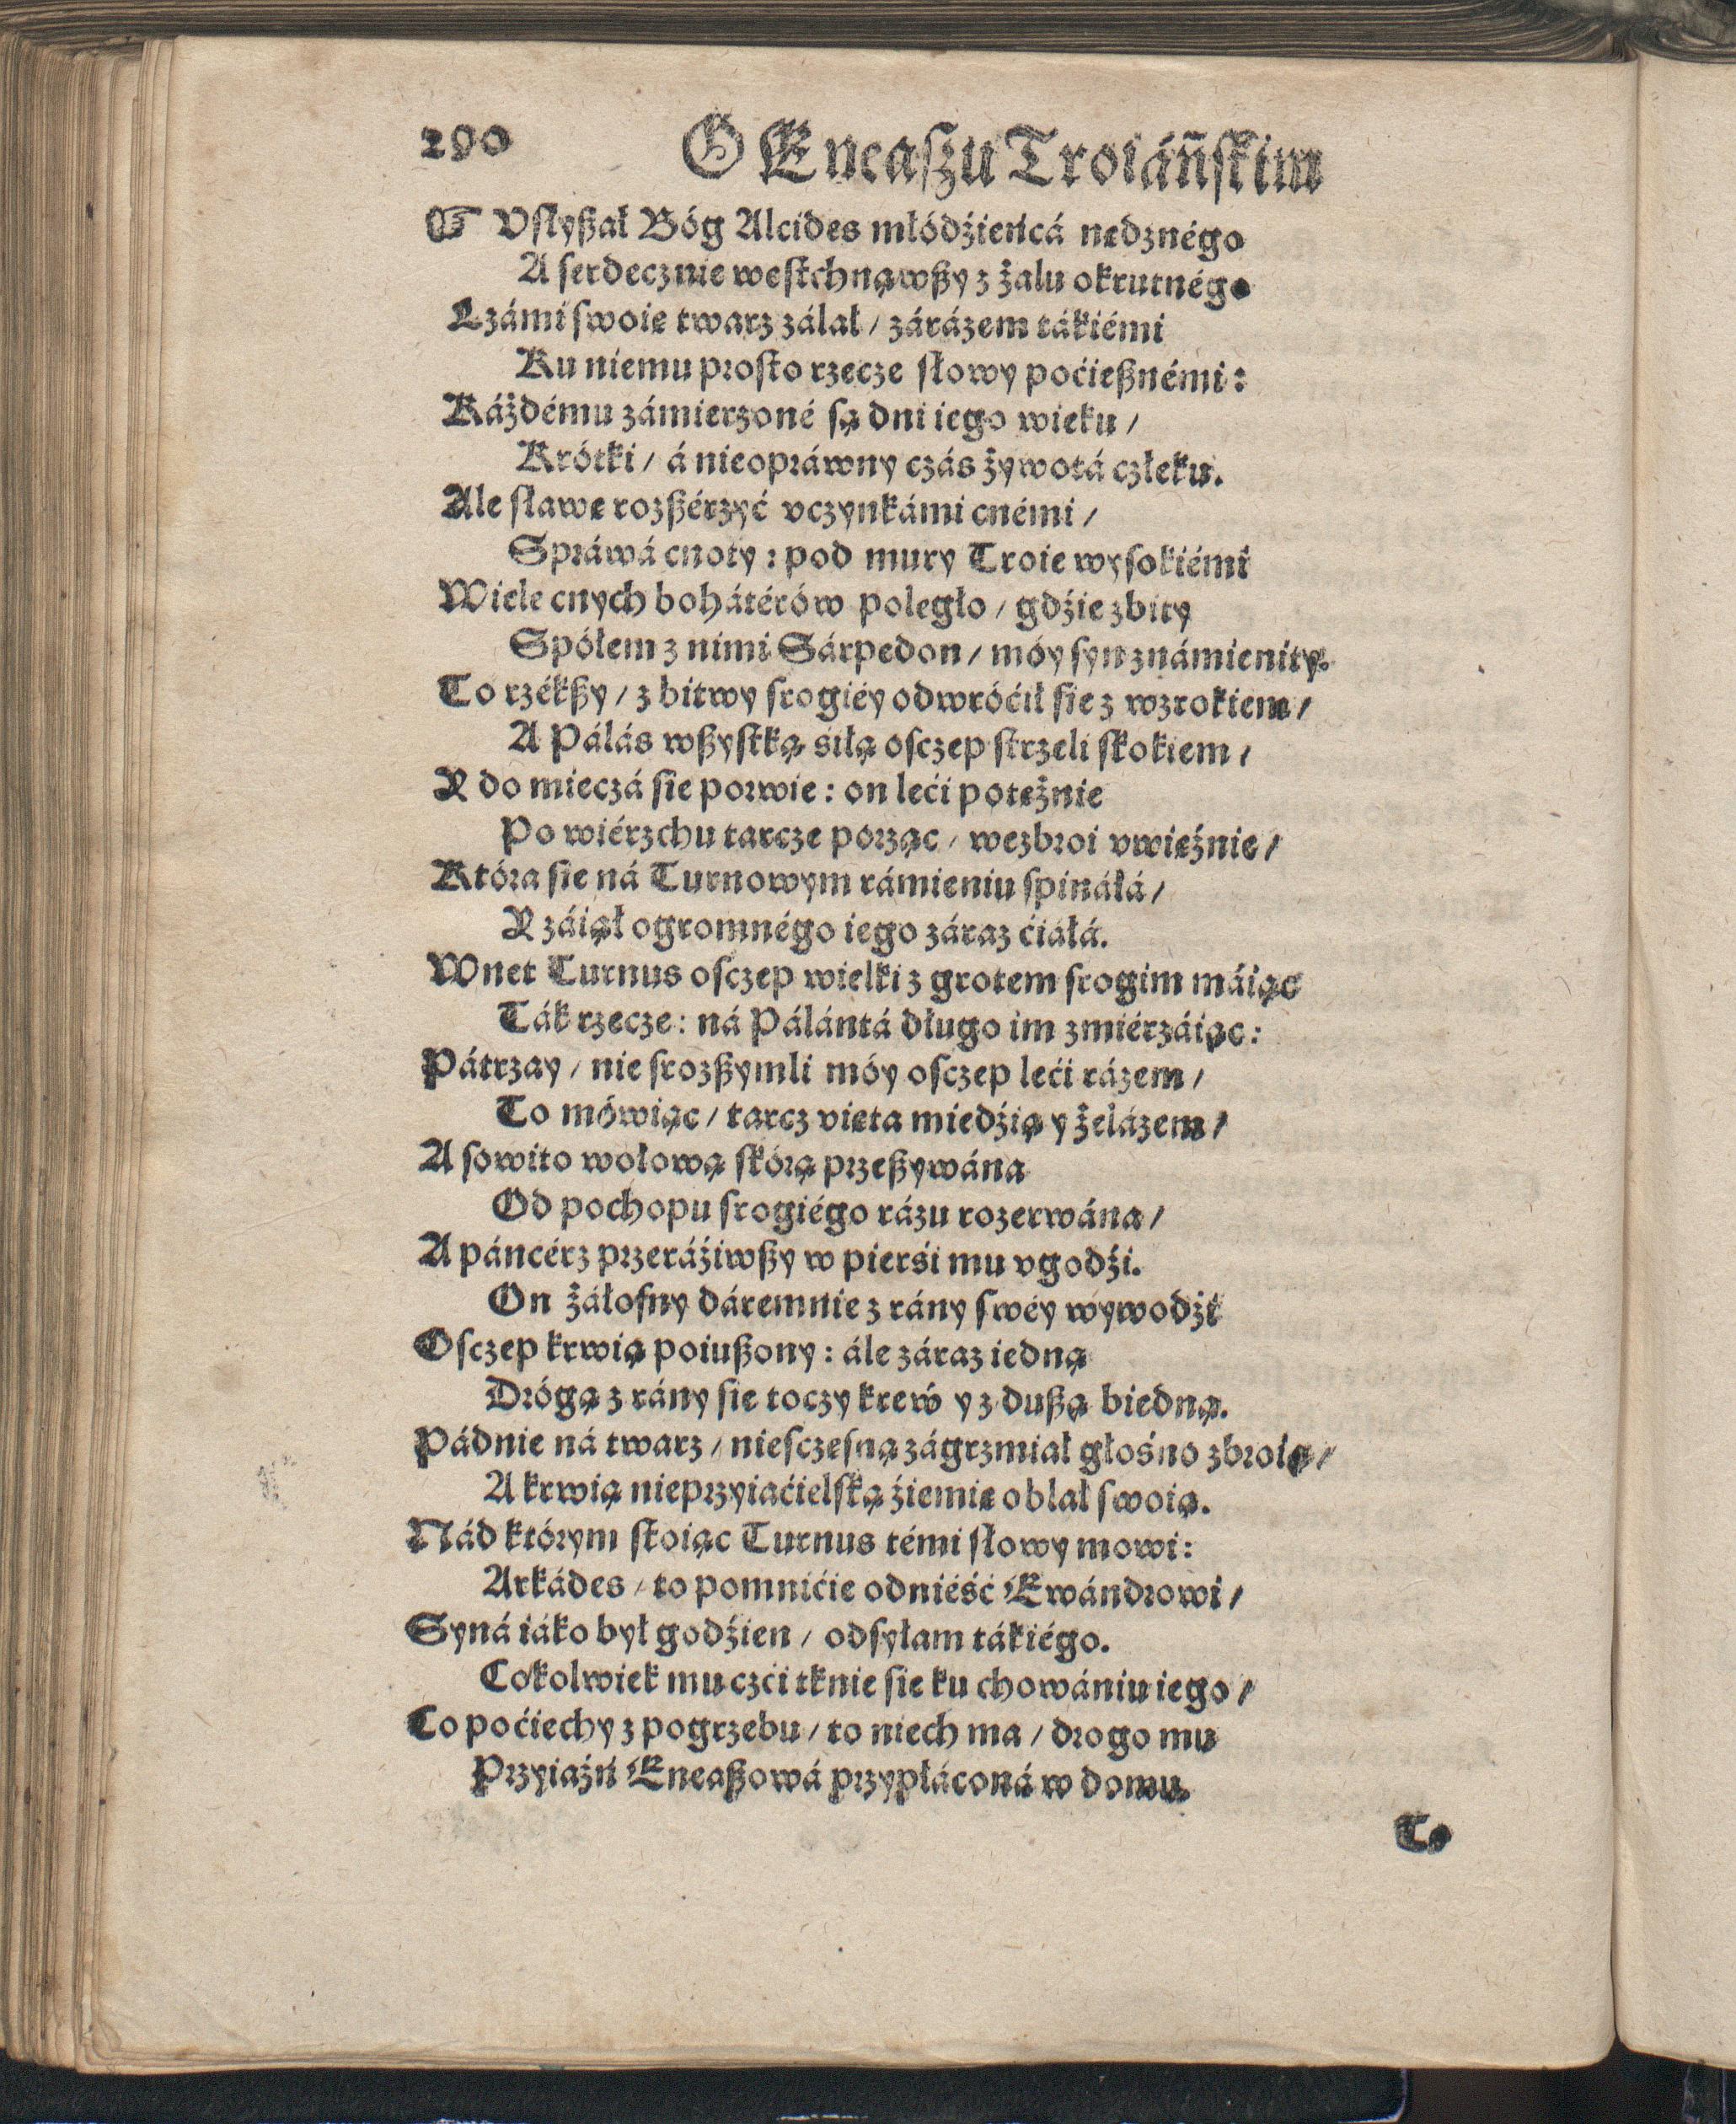 290 O Eneaſzu Troiáńſkim
☞ Vſłyßał Bóg Alcides młódźieńcá nędznégo
A ſerdecznie weſtchnąwßy z żalu okrutnégo
Łzámi ſwoię twarz zálał / zárázem tákiémi
Ku niemu proſto rzecze ſłowy poćießnémi:
Káżdému zámierzoné ſą dni iego wieku /
Krótki / á nieopráwny czás żywotá człeku.
Ale ſławę rozßérzyć vczynkámi cnémi /
Spráwá cnoty: pod mury Troie wyſokiémi
Wiele cnych bohátérów poległo / gdźie zbity
Spółem z nimi Sárpedon / móy ſyn známienity.
To rzékßy / z bitwy ſrogiéy odwróćił ſie z wzrokiem /
A Pálás wßyſtką siłą oſczep ſtrzeli ſkokiem /
Y do mieczá ſie porwie: on leći potężnie
Po wiérzchu tarcze porząc / wezbroi vwięźnie /
Która ſie ná Turnowym rámieniu ſpináłá /
Y záiął ogromnégo iego záraz ćiáłá.
Wnet Turnus oſczep wielki z grotem ſrogim máiąc
Ták rzecze: ná Pálántá długo im zmiérzáiąc:
Pátrzay / nie ſrozßymli móy oſczep leći rázem /
To mówiąc / tarcz vięta miedźią y żelázem /
A ſowito wołową ſkórą przeßywána
Od pochopu ſrogiégo rázu rozerwána /
A páncérz przeráźiwßy w pierśi mu vgodźi.
On żáłoſny dáremnie z rány ſwéy wywodźi
Oſczep krwią poiußony: ále záraz iedną
Drógą z rány ſie toczy kreẃ y z dußą biedną.
Pádnie ná twarz / nieſczeſną zágrzmiał głośno zbroią /
A krwią nieprzyiaćielſką źiemię oblał ſwoią.
Nád którym ſtoiąc Turnus témi ſłowy mowi:
Arkádes / to pomnićie odniéść Ewándrowi /
Syná iáko był godźien / odſyłam tákiégo.
Cokolwiek mu czći tknie ſie ku chowániu iego /
Co poćiechy z pogrzebu / to niech ma / drogo mu
Przyiaźń Eneaßowá przypłáconá w domu.
To